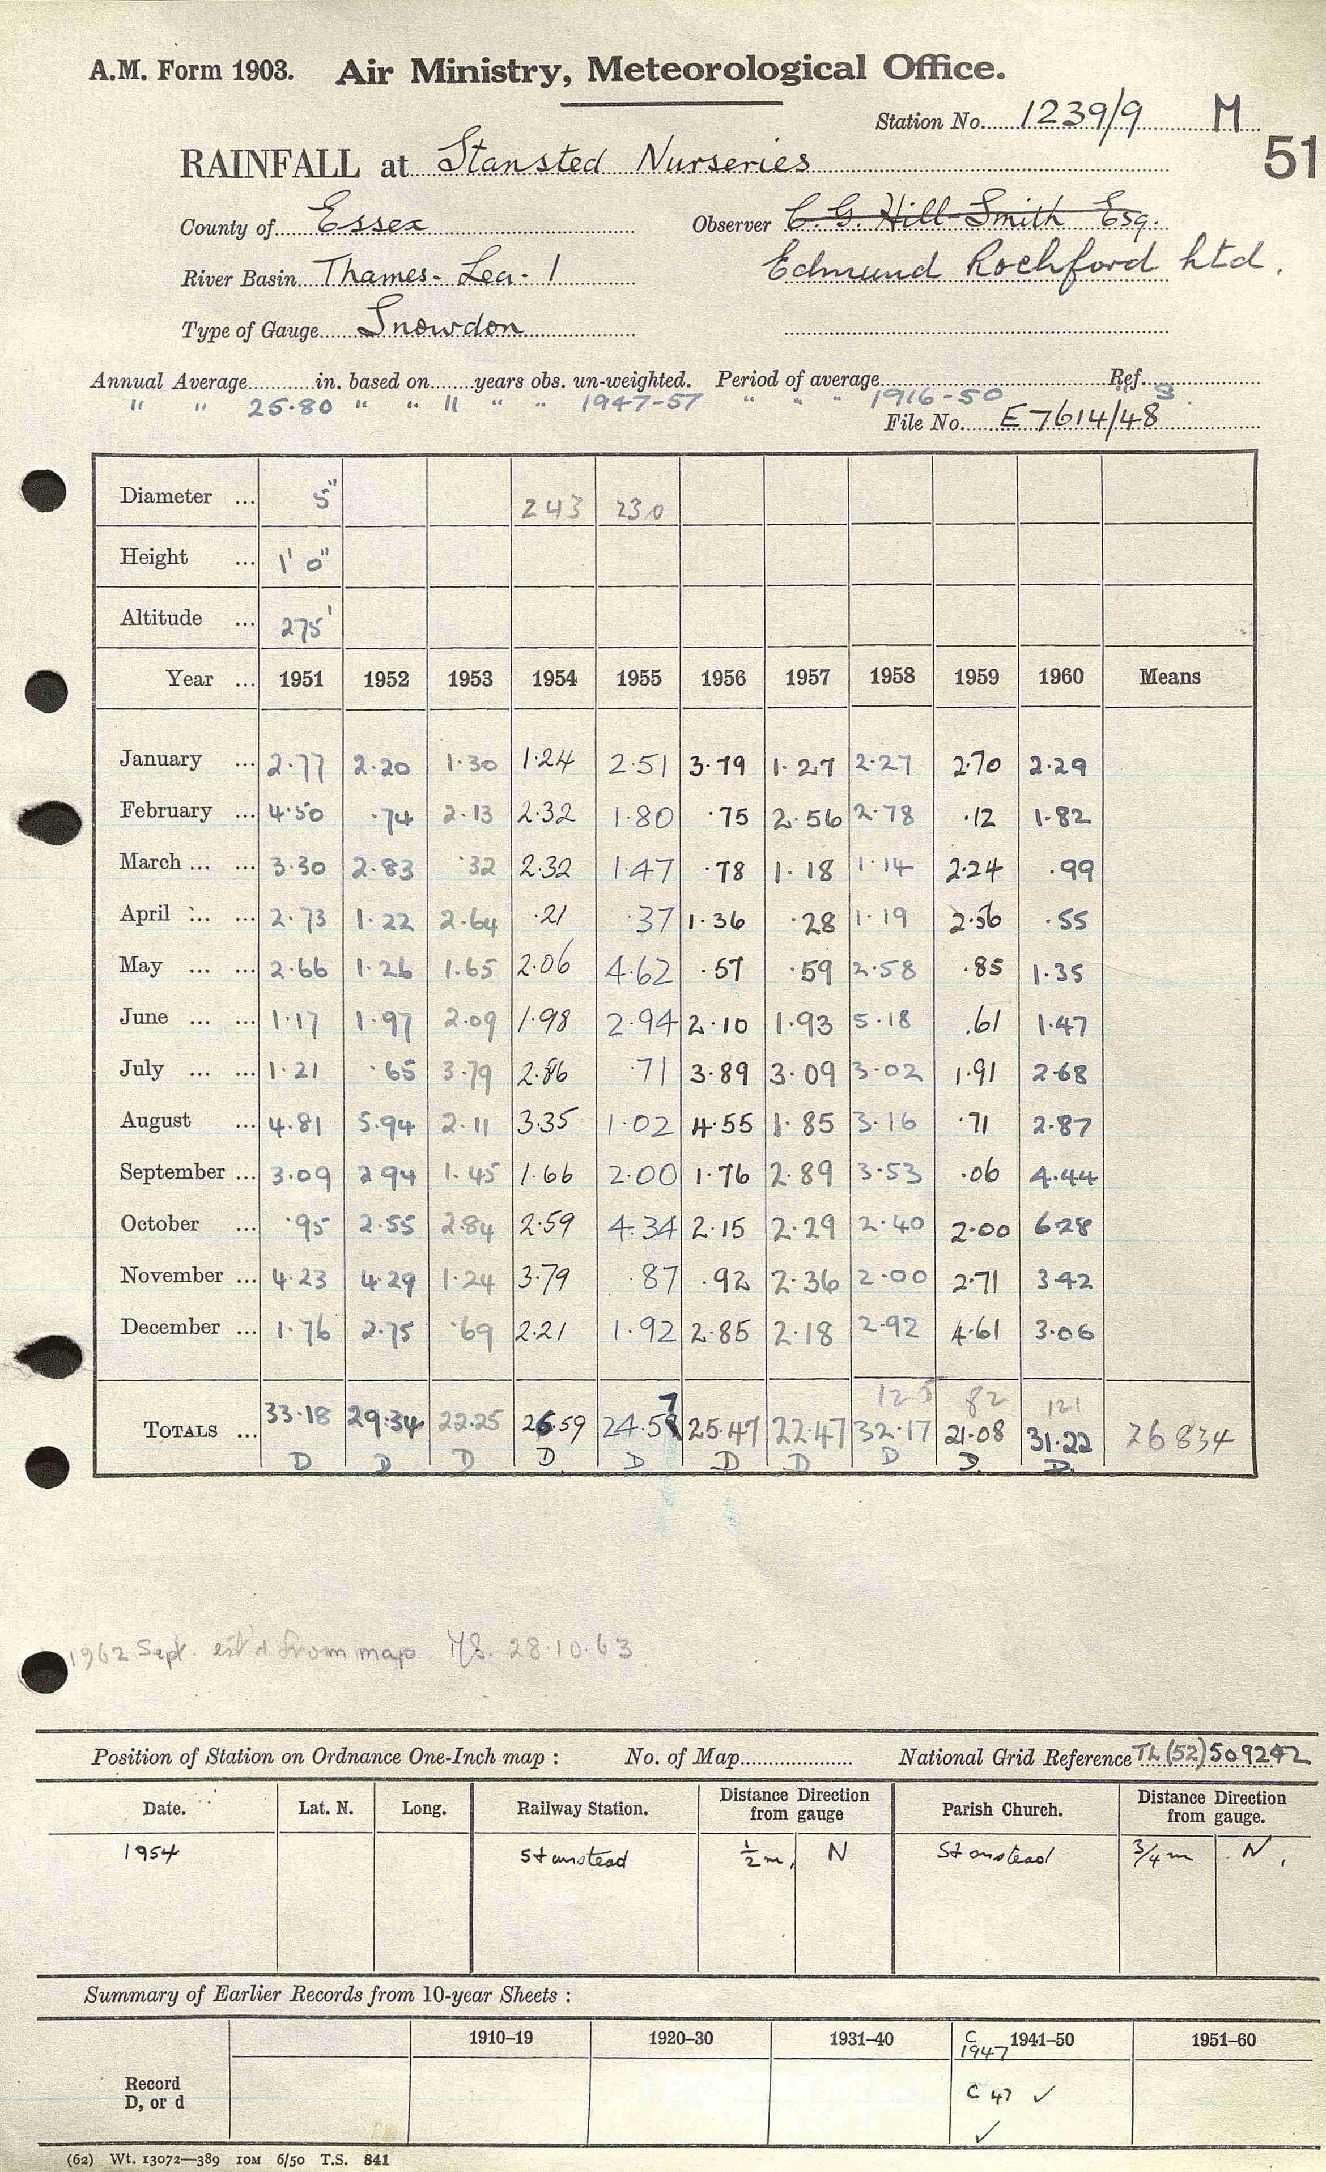 A.M. Form 1903. Air Ministry, Meteorological Office.
Station No. 1239/9 M
51
RAINFALL at Stansted Nurseries
County of Essex Observer C. G. Hill-Smith Esq.
River Basin Thames-Lea-1 Edmund Rochford Ltd.
Type of Gauge Snowdon
Annual Average in. based on years obs. un-weighted. Period of average Ref.
" " 25.80 " " 11 " " 1947-57 " " " 1916-50
File No. E7614/48
Diameter ... 5" 243 230
Height ... 1' 0"
Altitude ... 275'
Year ... 1951 1952 1953 1954 1955 1956 1957 1958 1959 1960 Means
January ... 2.77 2.20 1.30 1.24 2.51 3.79 1.27 2.27 2.70 2.29
February ... 4.50 .74 2.13 2.32 1.80 .75 2.56 2.78 .12 1.82
March ... ... 3.30 2.83 .32 2.32 1.47 .78 1.18 1.14 2.24 .99
April ... ... 2.73 1.22 2.64 .21 .37 1.36 .28 1.19 2.56 .55
May ... ... 2.66 1.26 1.65 2.06 4.62 .57 .59 2.58 .85 1.35
June ... ... 1.17 1.97 2.09 1.98 2.94 2.10 1.93 5.18 .61 1.47
July ... ... 1.21 .65 3.79 2.86 .71 3.89 3.09 3.02 1.91 2.68
August ... 4.81 5.94 2.11 3.35 1.02 4.55 1.85 3.16 .71 2.87
September ... 3.09 2.94 1.45 1.66 2.00 1.76 2.89 3.53 .06 4.44
October ... .95 2.55 2.84 2.59 4.34 2.15 2.29 2.40 2.00 6.28
November ... 4.23 4.29 1.24 3.79 .87 .92 2.36 2.00 2.71 3.42
December ... 1.76 2.75 .69 2.21 1.92 2.85 2.18 2.92 4.61 3.06
125 82 121
TOTALS ... 33.18 29.34 22.25 26.59 24.57 25.47 22.47 32.17 21.08 31.22 26834
D D D D D D D D D D
1962 Sept. est'd from map 28.10.63
Position of Station on Ordnance One-Inch map : No. of Map National Grid Reference TL (52) 509242
Date. Lat. N. Long. Railway Station. Distance Direction from gauge Parish Church. Distance Direction from gauge.
1954 Stanstead 1/2 m, N Stanstead 3/4 m N,
Summary of Earlier Records from 10-year Sheets :
1910–19 1920–30 1931–40 C 1947 1941–50 1951–60
Record
D, or d
C 47 ✓
✓
(62) Wt. 13072—389 10M 6/50 T.S. 841